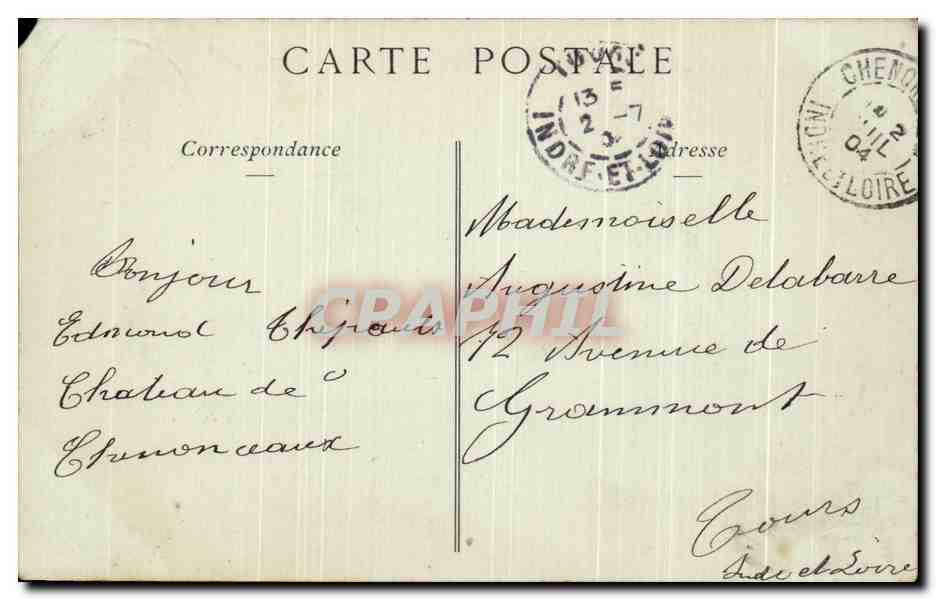 CARTE POSTALE
Correspondance
Adresse
INDRE-ET-LOIRE
13
2 -7
CHENON
2
JUIL
04
INDRE-ET-LOIRE
Bonjour
Edmond
Chateau de
Chenonceaux
Mademoiselle
Augustine Delabarre
12 Avenue de
Grammont
Tours
Indre et Loire
CPAPHIL